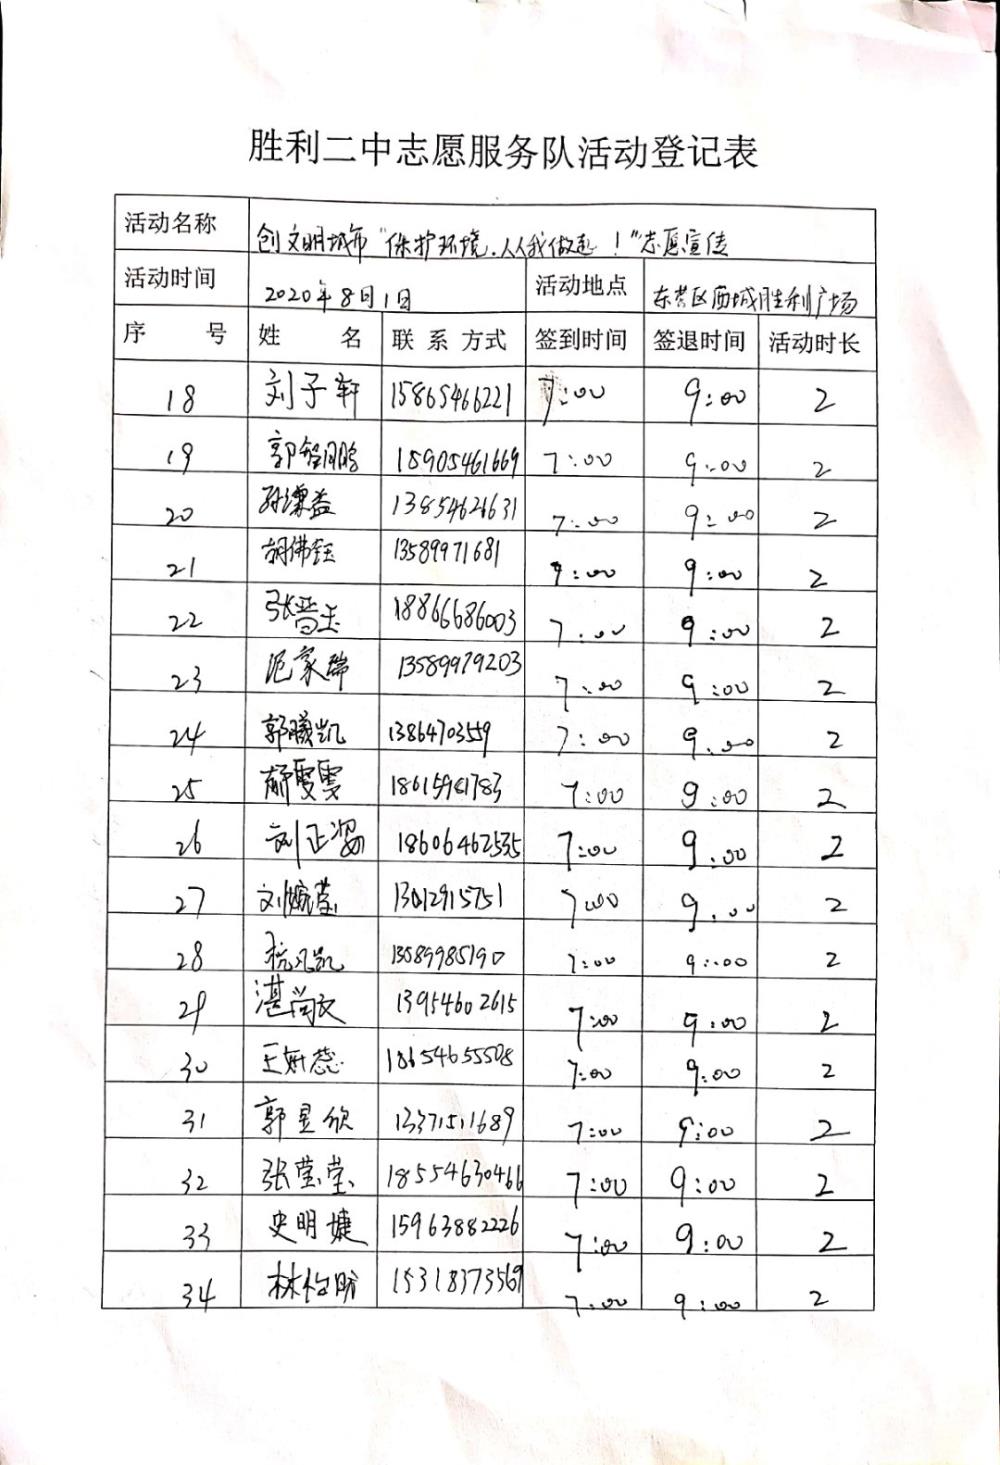 胜利二中志愿服务队活动登记表
活动名称 创文明城市“保护环境.从我做起！”志愿宣传
活动时间 2020年8月1日 活动地点 东营区西城胜利广场
序 号 姓 名 联 系 方式 签到时间 签退时间 活动时长
18 刘子轩 15865466221 7:00 9:00 2
19 郭铭鹏 15905461669 7:00 9:00 2
20 孙潇益 13854626631 7:00 9:00 2
21 胡佛钰 13589971681 9:00 2
22 张晋玉 18866686003 7:00 9:00 2
23 范家瑞 13589979203 7:00 9:00 2
24 郭曦凯 13864703559 7:00 9:00 2
25 18615981783 7:00 9:00 2
26 刘正姿 18606462535 7:00 9:00 2
27 刘婉莹 13012915751 7:00 9:00 2
28 杭凡凯 13589985190 7:00 9:00 2
29 湛尚文 13954602615 7:00 9:00 2
30 王妍蕊 18654655508 7:00 9:00 2
31 郭昱欣 13371511689 7:00 9:00 2
32 张莹莹 18554630466 7:00 9:00 2
33 史明婕 15963882226 7:00 9:00 2
34 林怡昕 15318373569 7:00 9:00 2